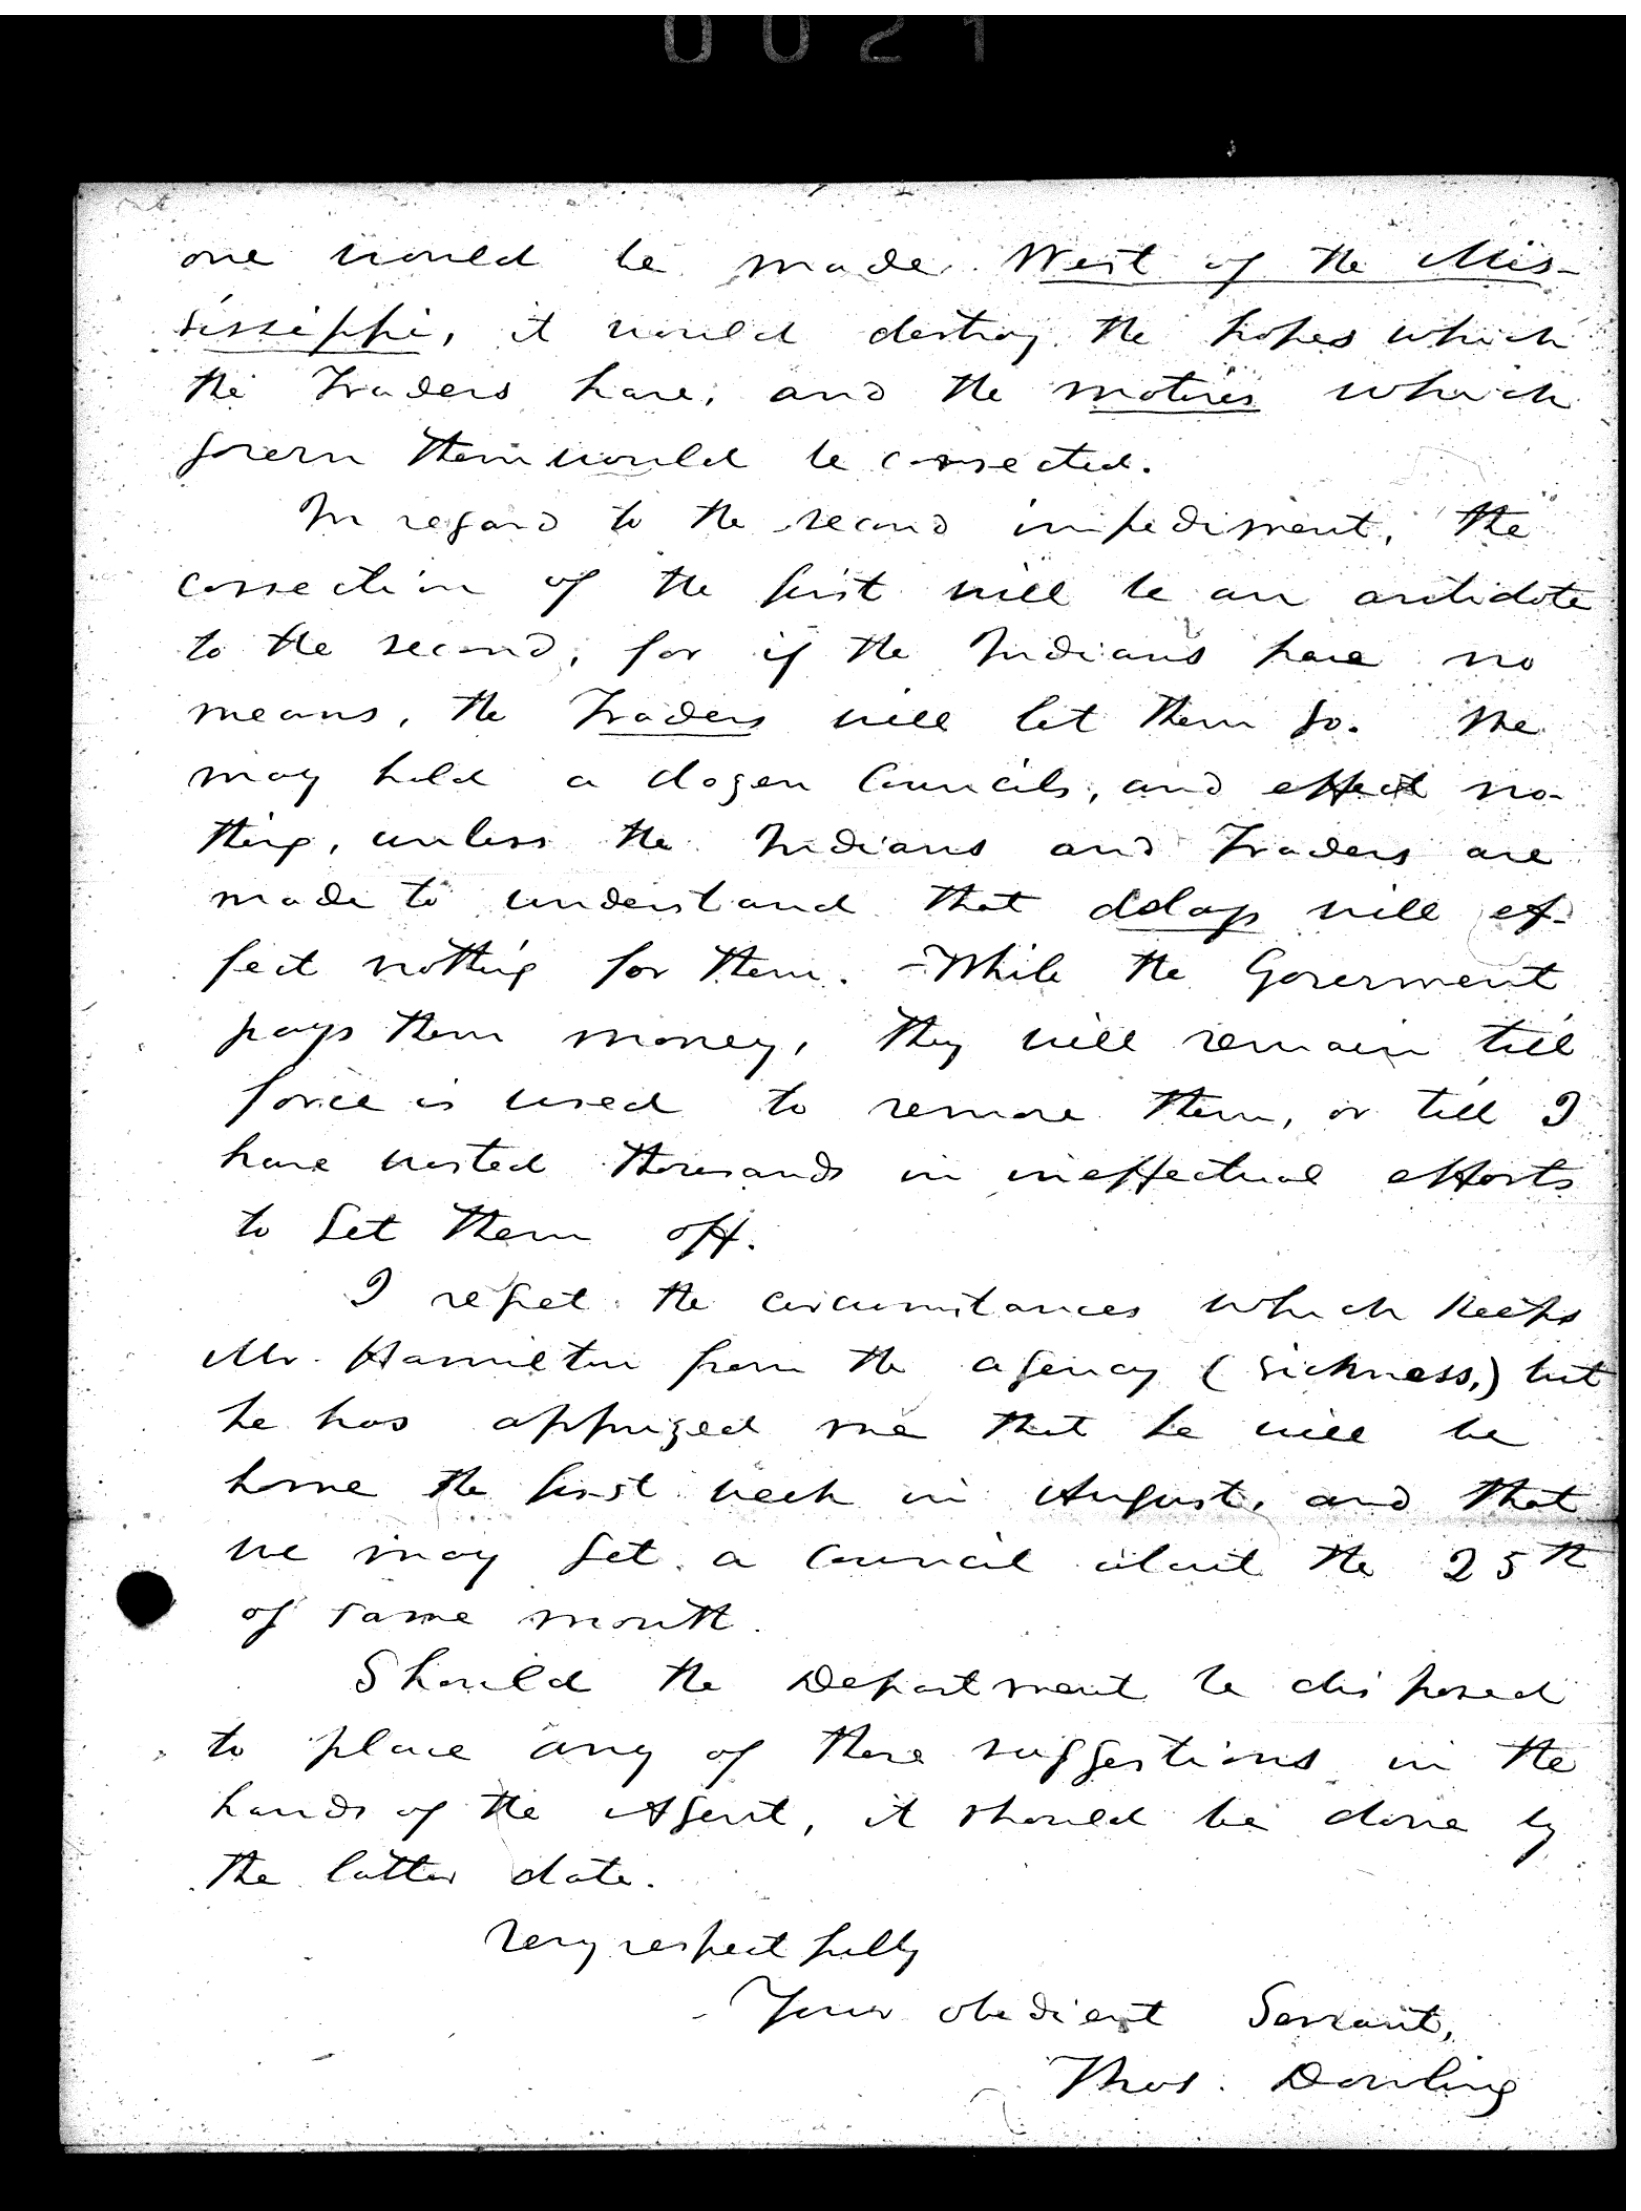 0021
one would be made West of the Mis-
sissippi, it would destroy the hopes which
the Traders have, and the motives which
govern them would be corrected.
In regard to the second impediment, the
correction of the first will be an antidote
to the second, for if the Indians have no
means, the Traders will let them go. We
may hold a dozen Councils, and effect no-
thing, unless the Indians and Traders are
made to understand that delays will ef-
fect nothing for them. - While the Goverment
pays them money, they will remain till
force is used to remove them, or till I
have wasted thousands in ineffectual efforts
to get them off.
I regret the circumstances which keeps
Mr. Hamilton from the agency (sickness,) but
he has apprized me that he will be
home the first week in August, and that
we may get a Council about the 25th
of same month.
Should the Department be disposed
to place any of these suggestions in the
hands of the Agent, it should be done by
the latter date.
Very respectfully
Your obedient Servant,
Thos. Dowling